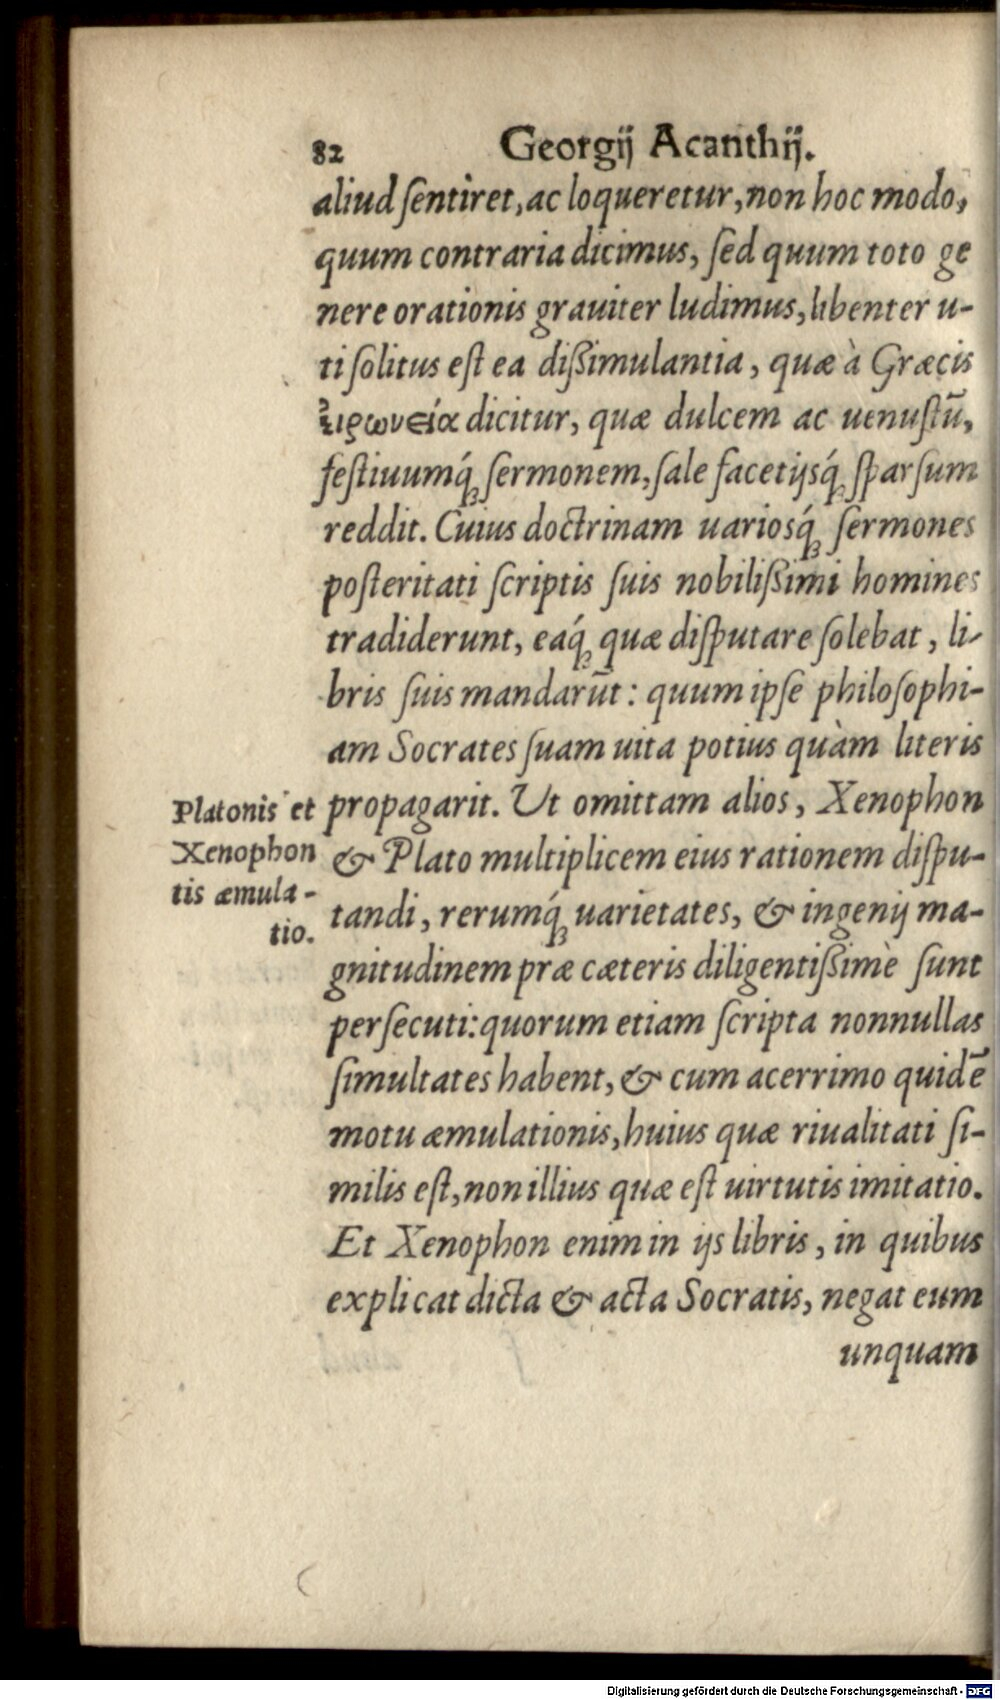 82 Georgij Acanthij.
aliud ſentiret, ac loqueretur, non hoc modo,
quum contraria dicimus, ſed quum toto ge
nere orationis grauiter ludimus, libenter u-
ti ſolitus eſt ea dißimulantia, quæ à Græcis
εἰρωνεία dicitur, quæ dulcem ac uenuſtũ,
feſtiuumq́; ſermonem, ſale facetijsq́; ſparſum
reddit. Cuius doctrinam uariosq́; ſermones
poſteritati ſcriptis ſuis nobilißimi homines
tradiderunt, eaq́; quæ diſputare ſolebat, li-
bris ſuis mandarũt: quum ipſe philoſophi-
am Socrates ſuam uita potius quàm literis
propagarit. Ut omittam alios, Xenophon
& Plato multiplicem eius rationem diſpu-
tandi, rerumq́; uarietates, & ingenij ma-
gnitudinem præ cæteris diligentißimè ſunt
perſecuti: quorum etiam ſcripta nonnullas
ſimultates habent, & cum acerrimo quidẽ
motu æmulationis, huius quæ riualitati ſi-
milis eſt, non illius quæ eſt uirtutis imitatio.
Et Xenophon enim in ijs libris, in quibus
explicat dicta & acta Socratis, negat eum
unquam
Platonis et
Xenophon
tis æmula-
tio.
Digitalisierung gefördert durch die Deutsche Forschungsgemeinschaft - DFG